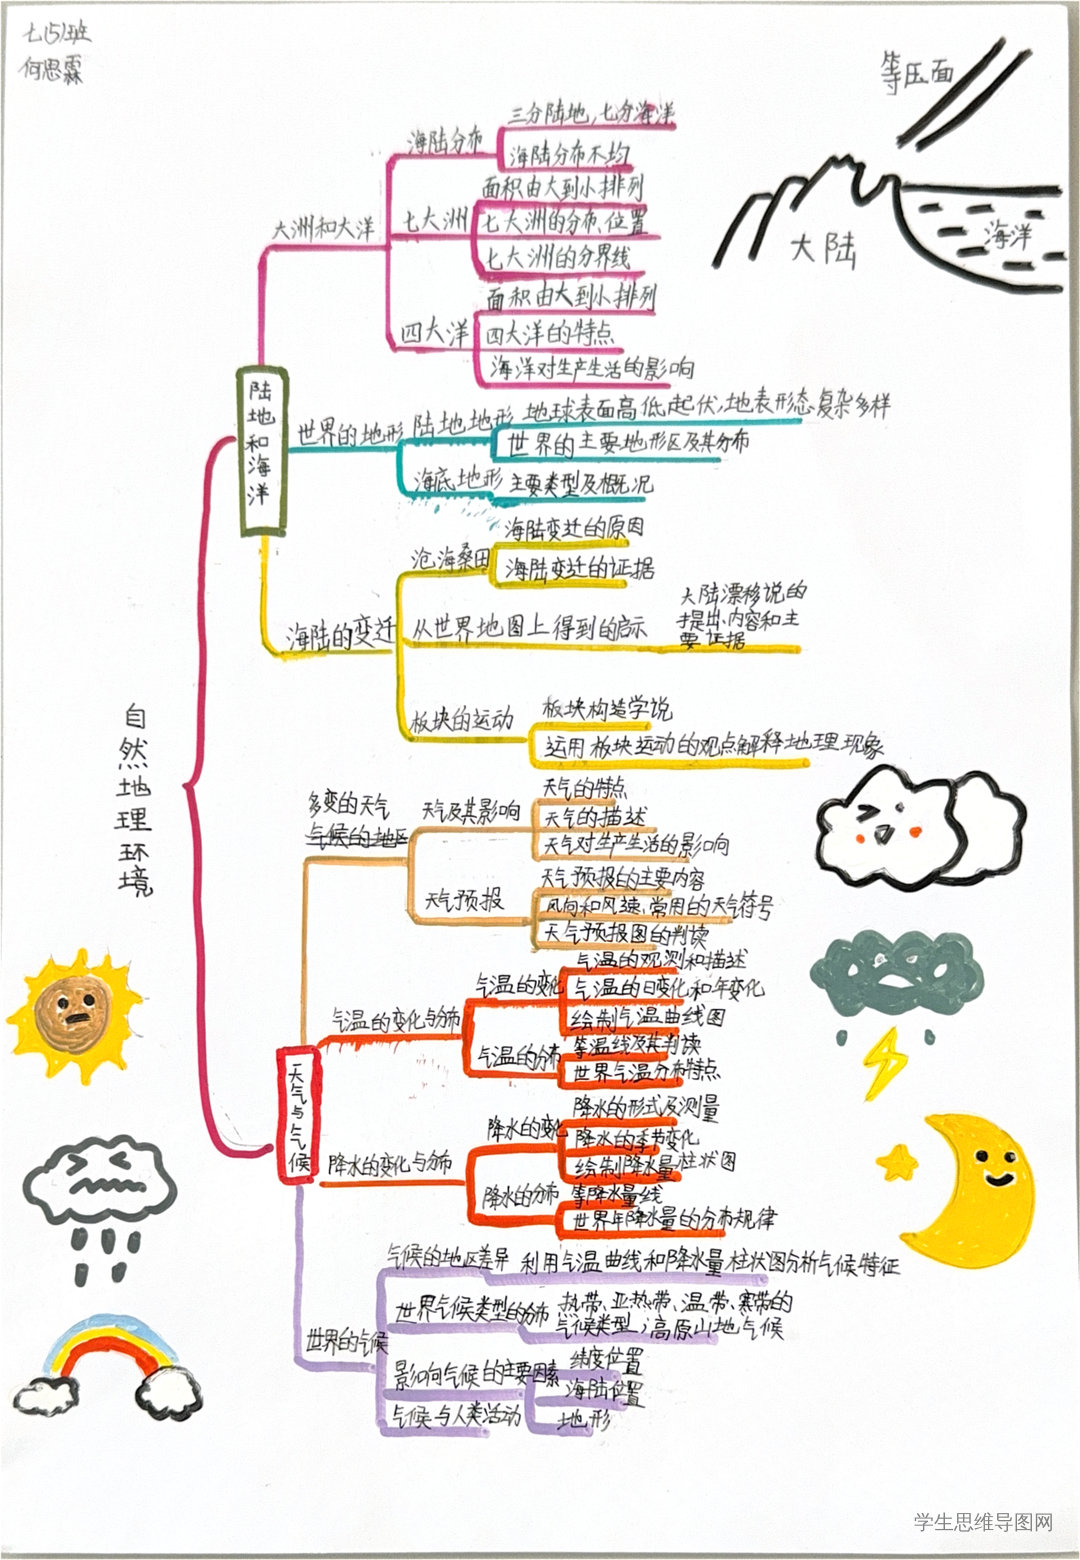 七(5)班
何思霖
等压面
大陆
海洋
自然地理环境
陆地和海洋
大洲和大洋
海陆分布
三分陆地,七分海洋
海陆分布不均
七大洲
面积由大到小排列
七大洲的分布、位置
七大洲的分界线
四大洋
面积由大到小排列
四大洋的特点
海洋对生产生活的影响
世界的地形
陆地地形
地球表面高低起伏,地表形态复杂多样
世界的主要地形区及其分布
海底地形
主要类型及概况
海陆的变迁
沧海桑田
海陆变迁的原因
海陆变迁的证据
从世界地图上得到的启示
大陆漂移说的
提出、内容和主
要证据
板块的运动
板块构造学说
运用板块运动的观点解释地理现象
天气与气候
多变的天气
气候的地区
天气及其影响
天气的特点
天气的描述
天气对生产生活的影响
天气预报
天气预报的主要内容
风向和风速、常用的天气符号
天气预报图的判读
气温的变化与分布
气温的变化
气温的观测和描述
气温的日变化和年变化
绘制气温曲线图
气温的分布
等温线及其判读
世界气温分布特点
降水的变化与分布
降水的变化
降水的形式及测量
降水的季节变化
绘制降水量柱状图
降水的分布
等降水量线
世界年降水量的分布规律
世界的气候
气候的地区差异
利用气温曲线和降水量柱状图分析气候特征
世界气候类型的分布
热带、亚热带、温带、寒带的
气候类型;高原山地气候
影响气候的主要因素
纬度位置
海陆位置
地形
气候与人类活动
学生思维导图网